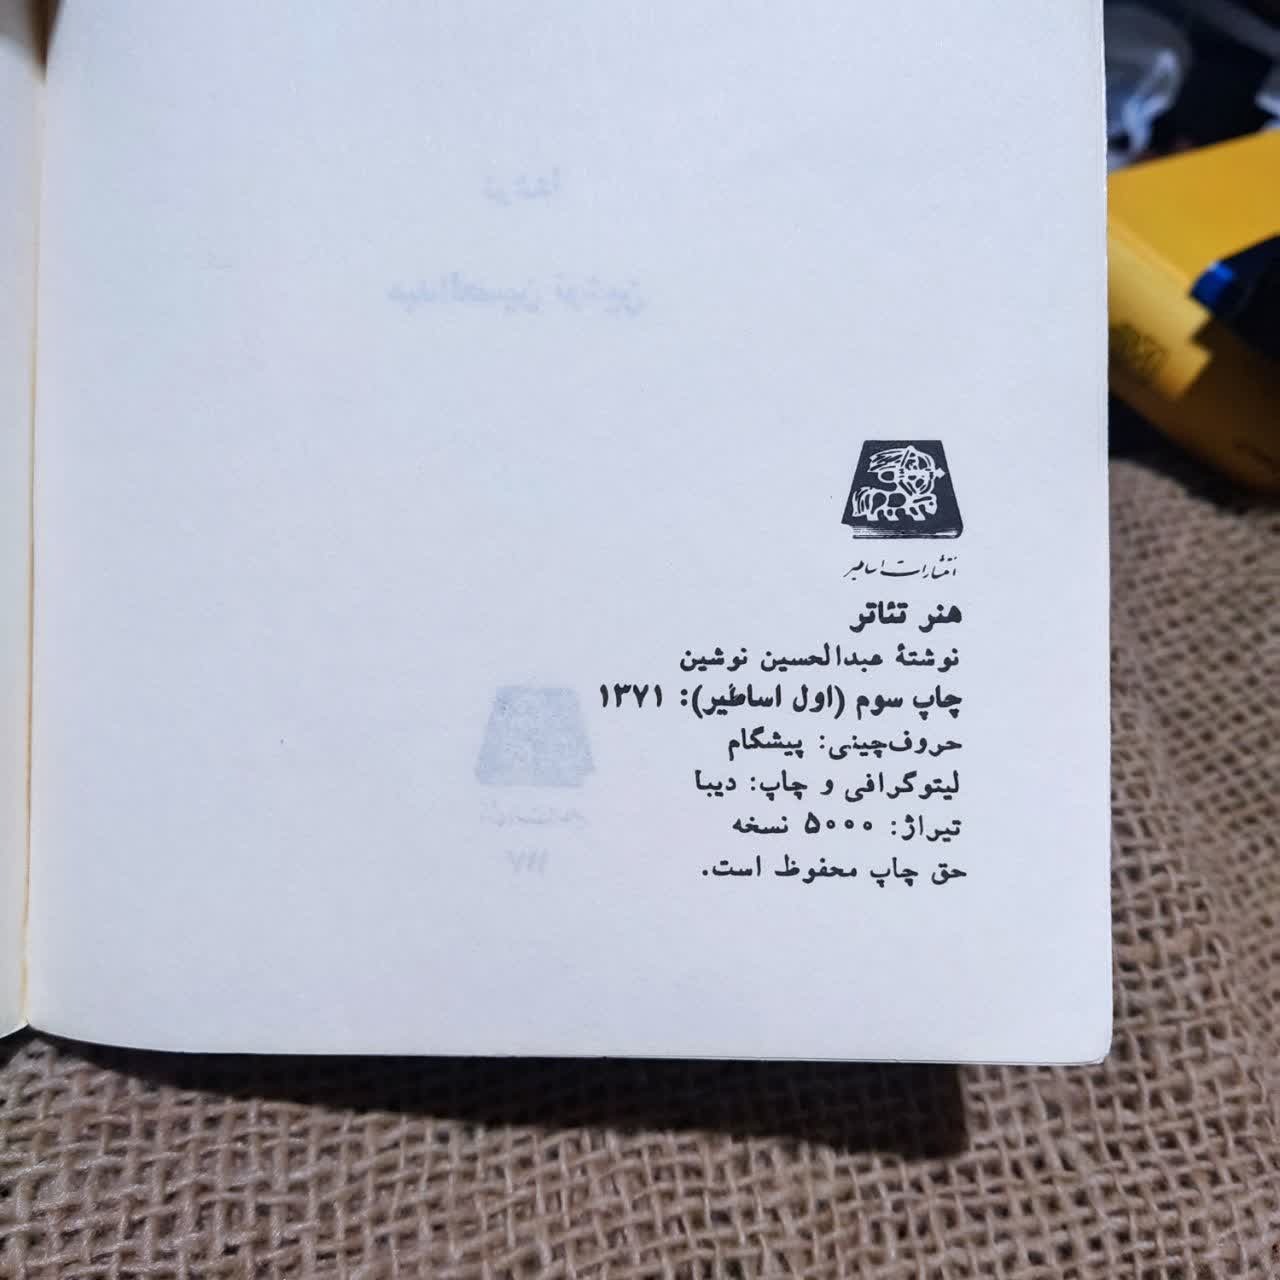 انتشارات اساطیر
هنر تئاتر
نوشتهٔ عبدالحسین نوشین
چاپ سوم (اول اساطیر): ۱۳۷۱
حروف‌چینی: پیشگام
لیتوگرافی و چاپ: دیبا
تیراژ: ۵۰۰۰ نسخه
حق چاپ محفوظ است.